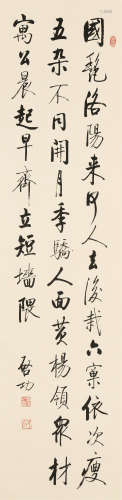 國艷洛陽來何人去後栽六窠依次瘦
五朵不同開月季驕人面黃楊領眾材
寓公晨起早齊立短墻隈
啟功